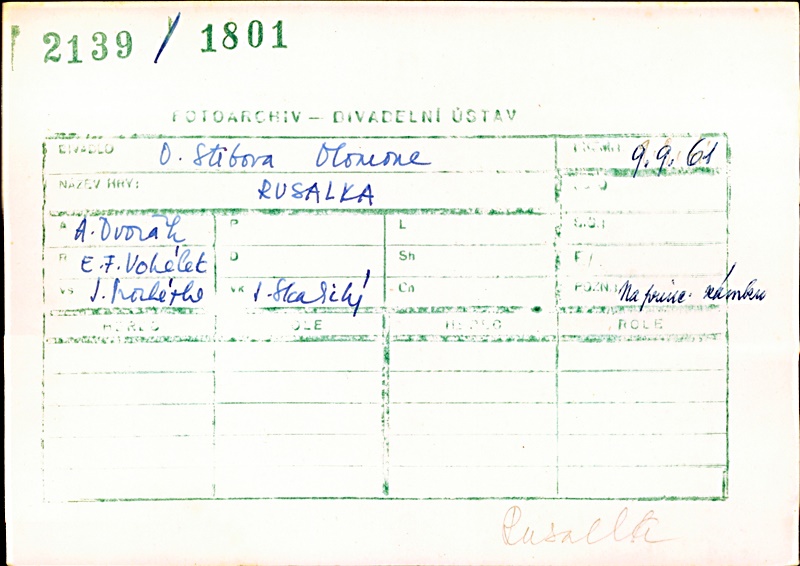 2139 / 1801
FOTOARCHIV — DIVADELNÍ ÚSTAV
DIVADLO O. Stibora Olomouc 9.9.61
NÁZEV HRY: RUSALKA
A A. Dvořák P L
R E. F. Vokálek D Sh F/
VS VK J. Skalický Cn POZN.
HEREC ROLE HEREC ROLE
Rusalka